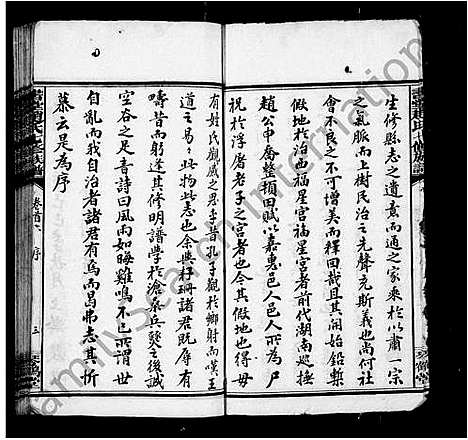 生修縣志之遺意而通之家乘於以肅一宗
之氣脈而上樹民治之先聲充斯義也尚何社
會不良之不可增美而釋回哉且其開始鉛槧
假地於治古福星宮福星宮者前代湖南巡撫
趙公申喬整損田賦以嘉惠邑人邑人為尸
祝於浮屠老子之宮者也今其假地也得毋
有姓氏觀感之思乎昔孔子觀於鄉射而嘆王
道之易易此物此志也余與籽珊諸君既辱有
疇昔而躬逢其修明譜學於滄桑兵燹之後誠
空谷之足音詩曰風雨如晦雞鳴不已所謂世
自亂而我自治者諸君有焉而曷弗志其忻
慕云是為序
卷首 序
三
琴鶴堂